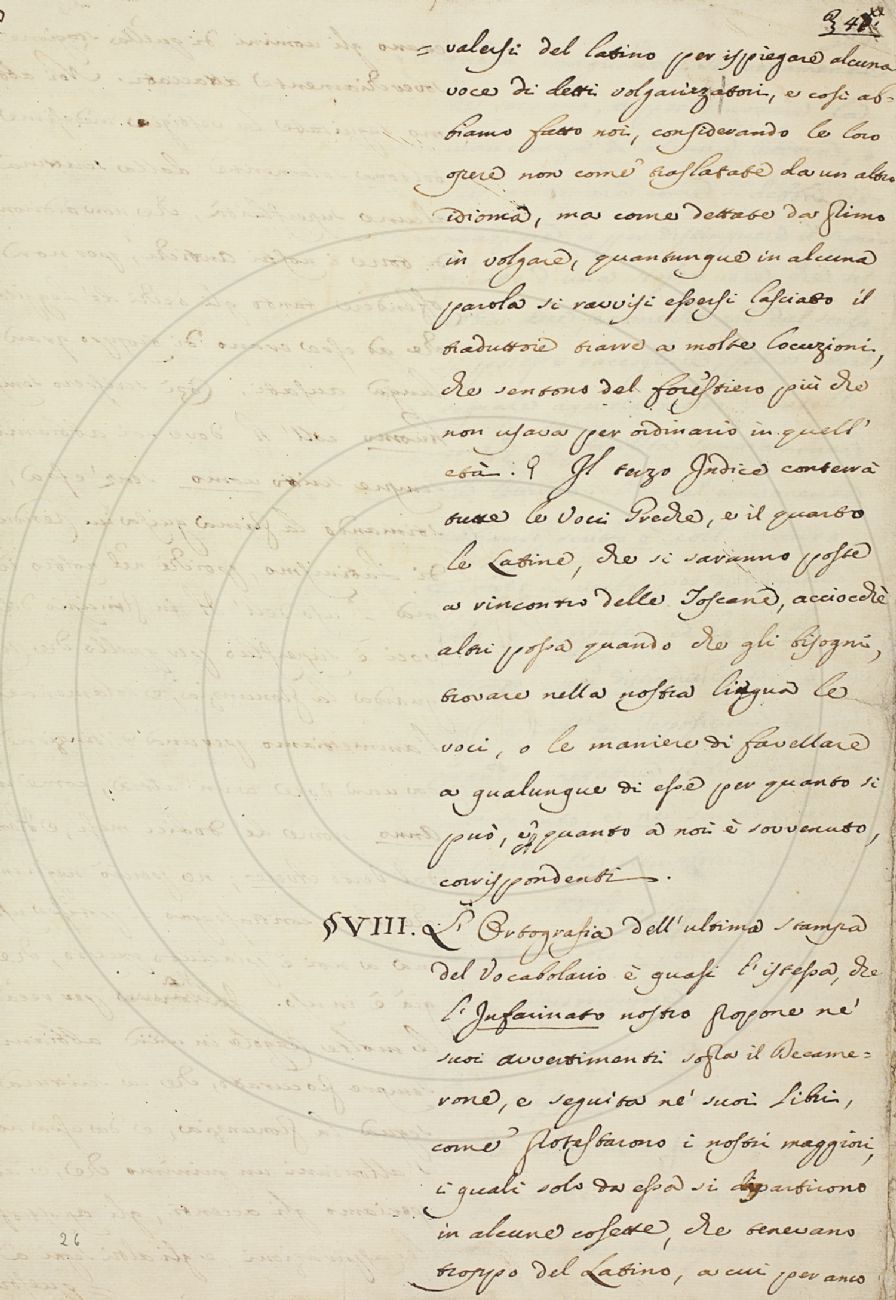 = valersi del latino per ispiegare alcuna
voce di detti volgarizzatori, e così ab-
biamo fatto noi, considerando le loro
opere non come traslatate da un altro
idioma, ma come dettate da primo
in volgare, quantunque in alcuna
parola si ravvisi essersi lasciato il
traduttore trarre a molte locuzioni,
che sentono del forestiero più che
non usava per ordinario in quell'
età. Il terzo Indice conterrà
tutte le Voci Greche, e il quarto
le Latine, che si saranno poste
a rincontro delle Toscane, acciocchè
altri possa quando che gli bisogni,
trovare nella nostra lingua le
voci, o le maniere di favellare
a qualunque di esse per quanto si
può, e quanto a noi è sovvenuto,
corrispondenti.
§VIII. L'Ortografia dell'ultima stampa
del Vocabolario è quasi l'istessa, che
l'Infarinato nostro propone ne'
suoi avvertimenti sopra il Decame=
rone, e seguita ne' suoi Libri,
come protestarono i nostri maggiori,
i quali solo da essa si dipartirono
in alcune cosette, che tenevano
troppo del Latino, a cui per anco
26